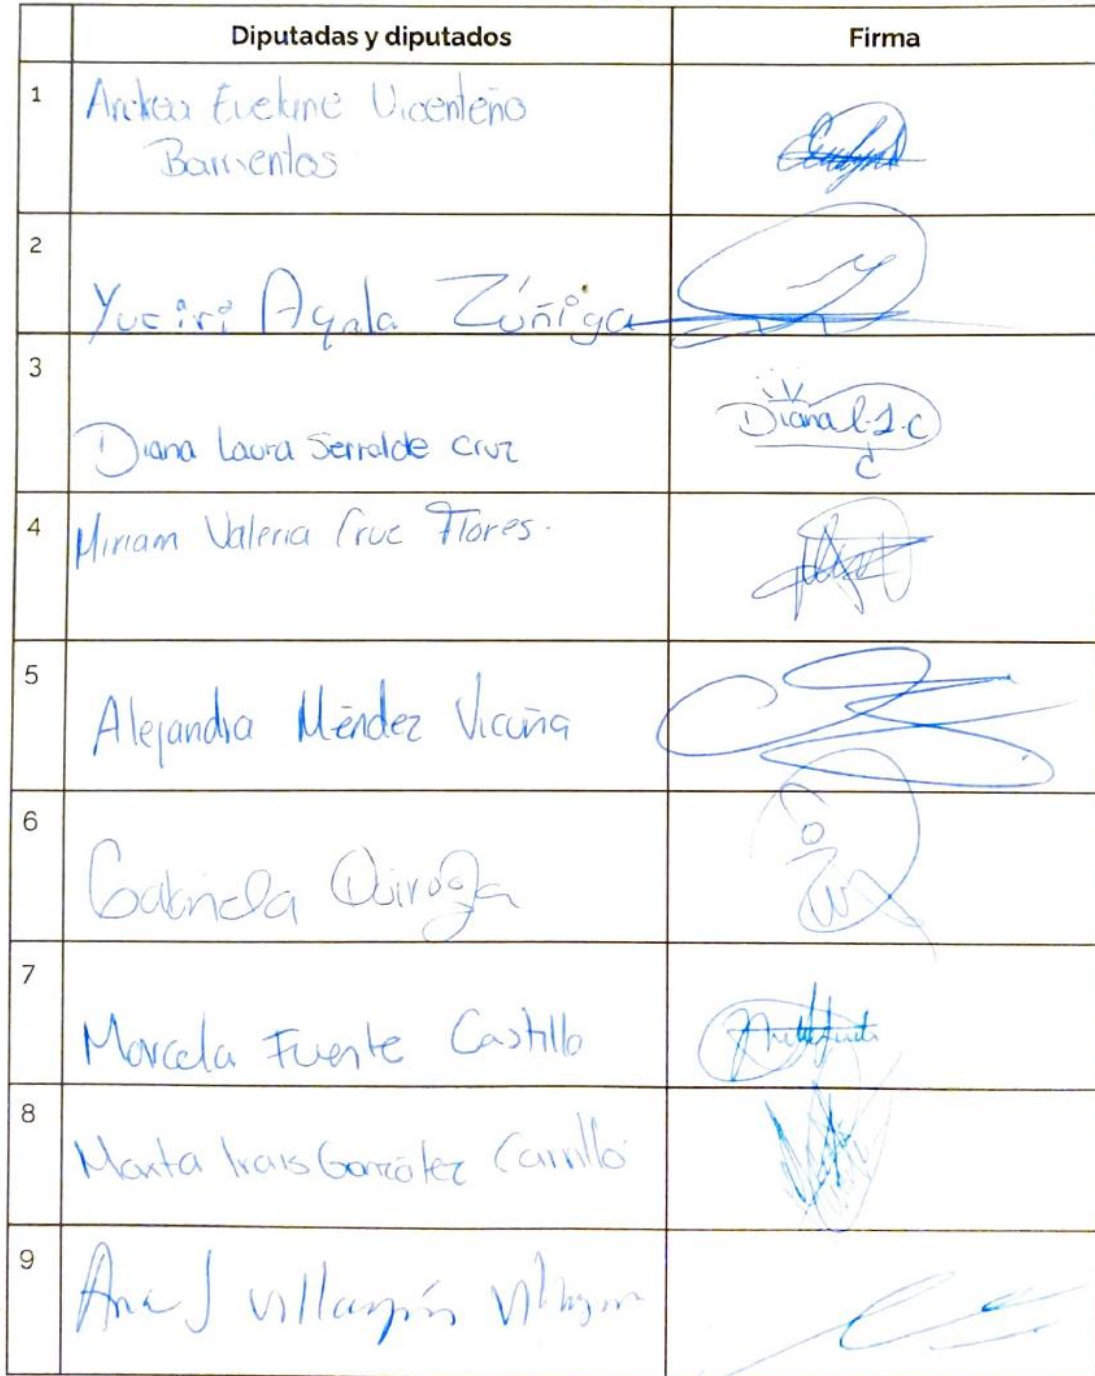 Diputadas y diputados Firma
1 Andrea Evelyne Vicenteño
Barrientos
2 Yuriri Ayala Zúñiga
3 Diana Laura Serralde Cruz Diana L.S.C
4 Miriam Valeria Cruz Flores.
5 Alejandra Méndez Vicuña
6 Gabriela Quiroga
7 Marcela Fuente Castillo
8 Marta Irais González Carrillo
9 Ana J Villagrán